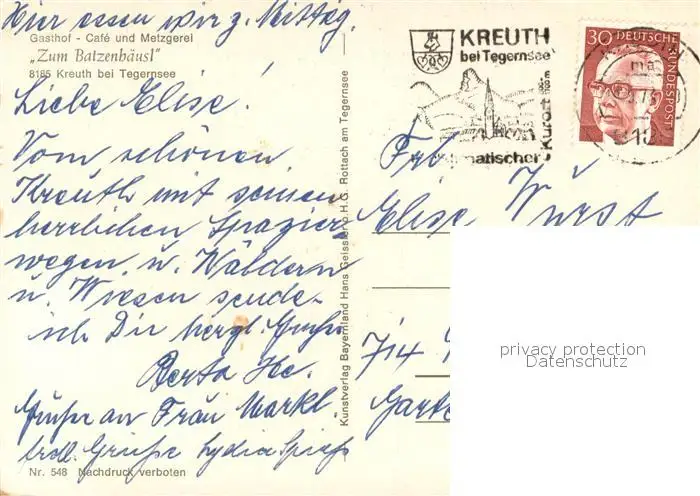 Hier essen wir z. Mittag.
Gasthof - Café und Metzgerei
„Zum Batzenhäusl"
8185 Kreuth bei Tegernsee
Liebe Elise!
Vom schönen
Kreuth mit seinen
herrlichen Spazier-
wegen u. Wäldern
u. Wiesen sende
ich Dir herzl. Grüße
Berta
Grüße an Frau Markl.
Grüße Lydia
Nr. 548 Nachdruck verboten
Kunstverlag Bayernland Hans Geissler o.H.G. Rottach am Tegernsee
KREUTH
bei Tegernsee
Kurort
30 DEUTSCHE
BUNDESPOST
Frl.
Elise Wurst
714
Garte
privacy protection
Datenschutz